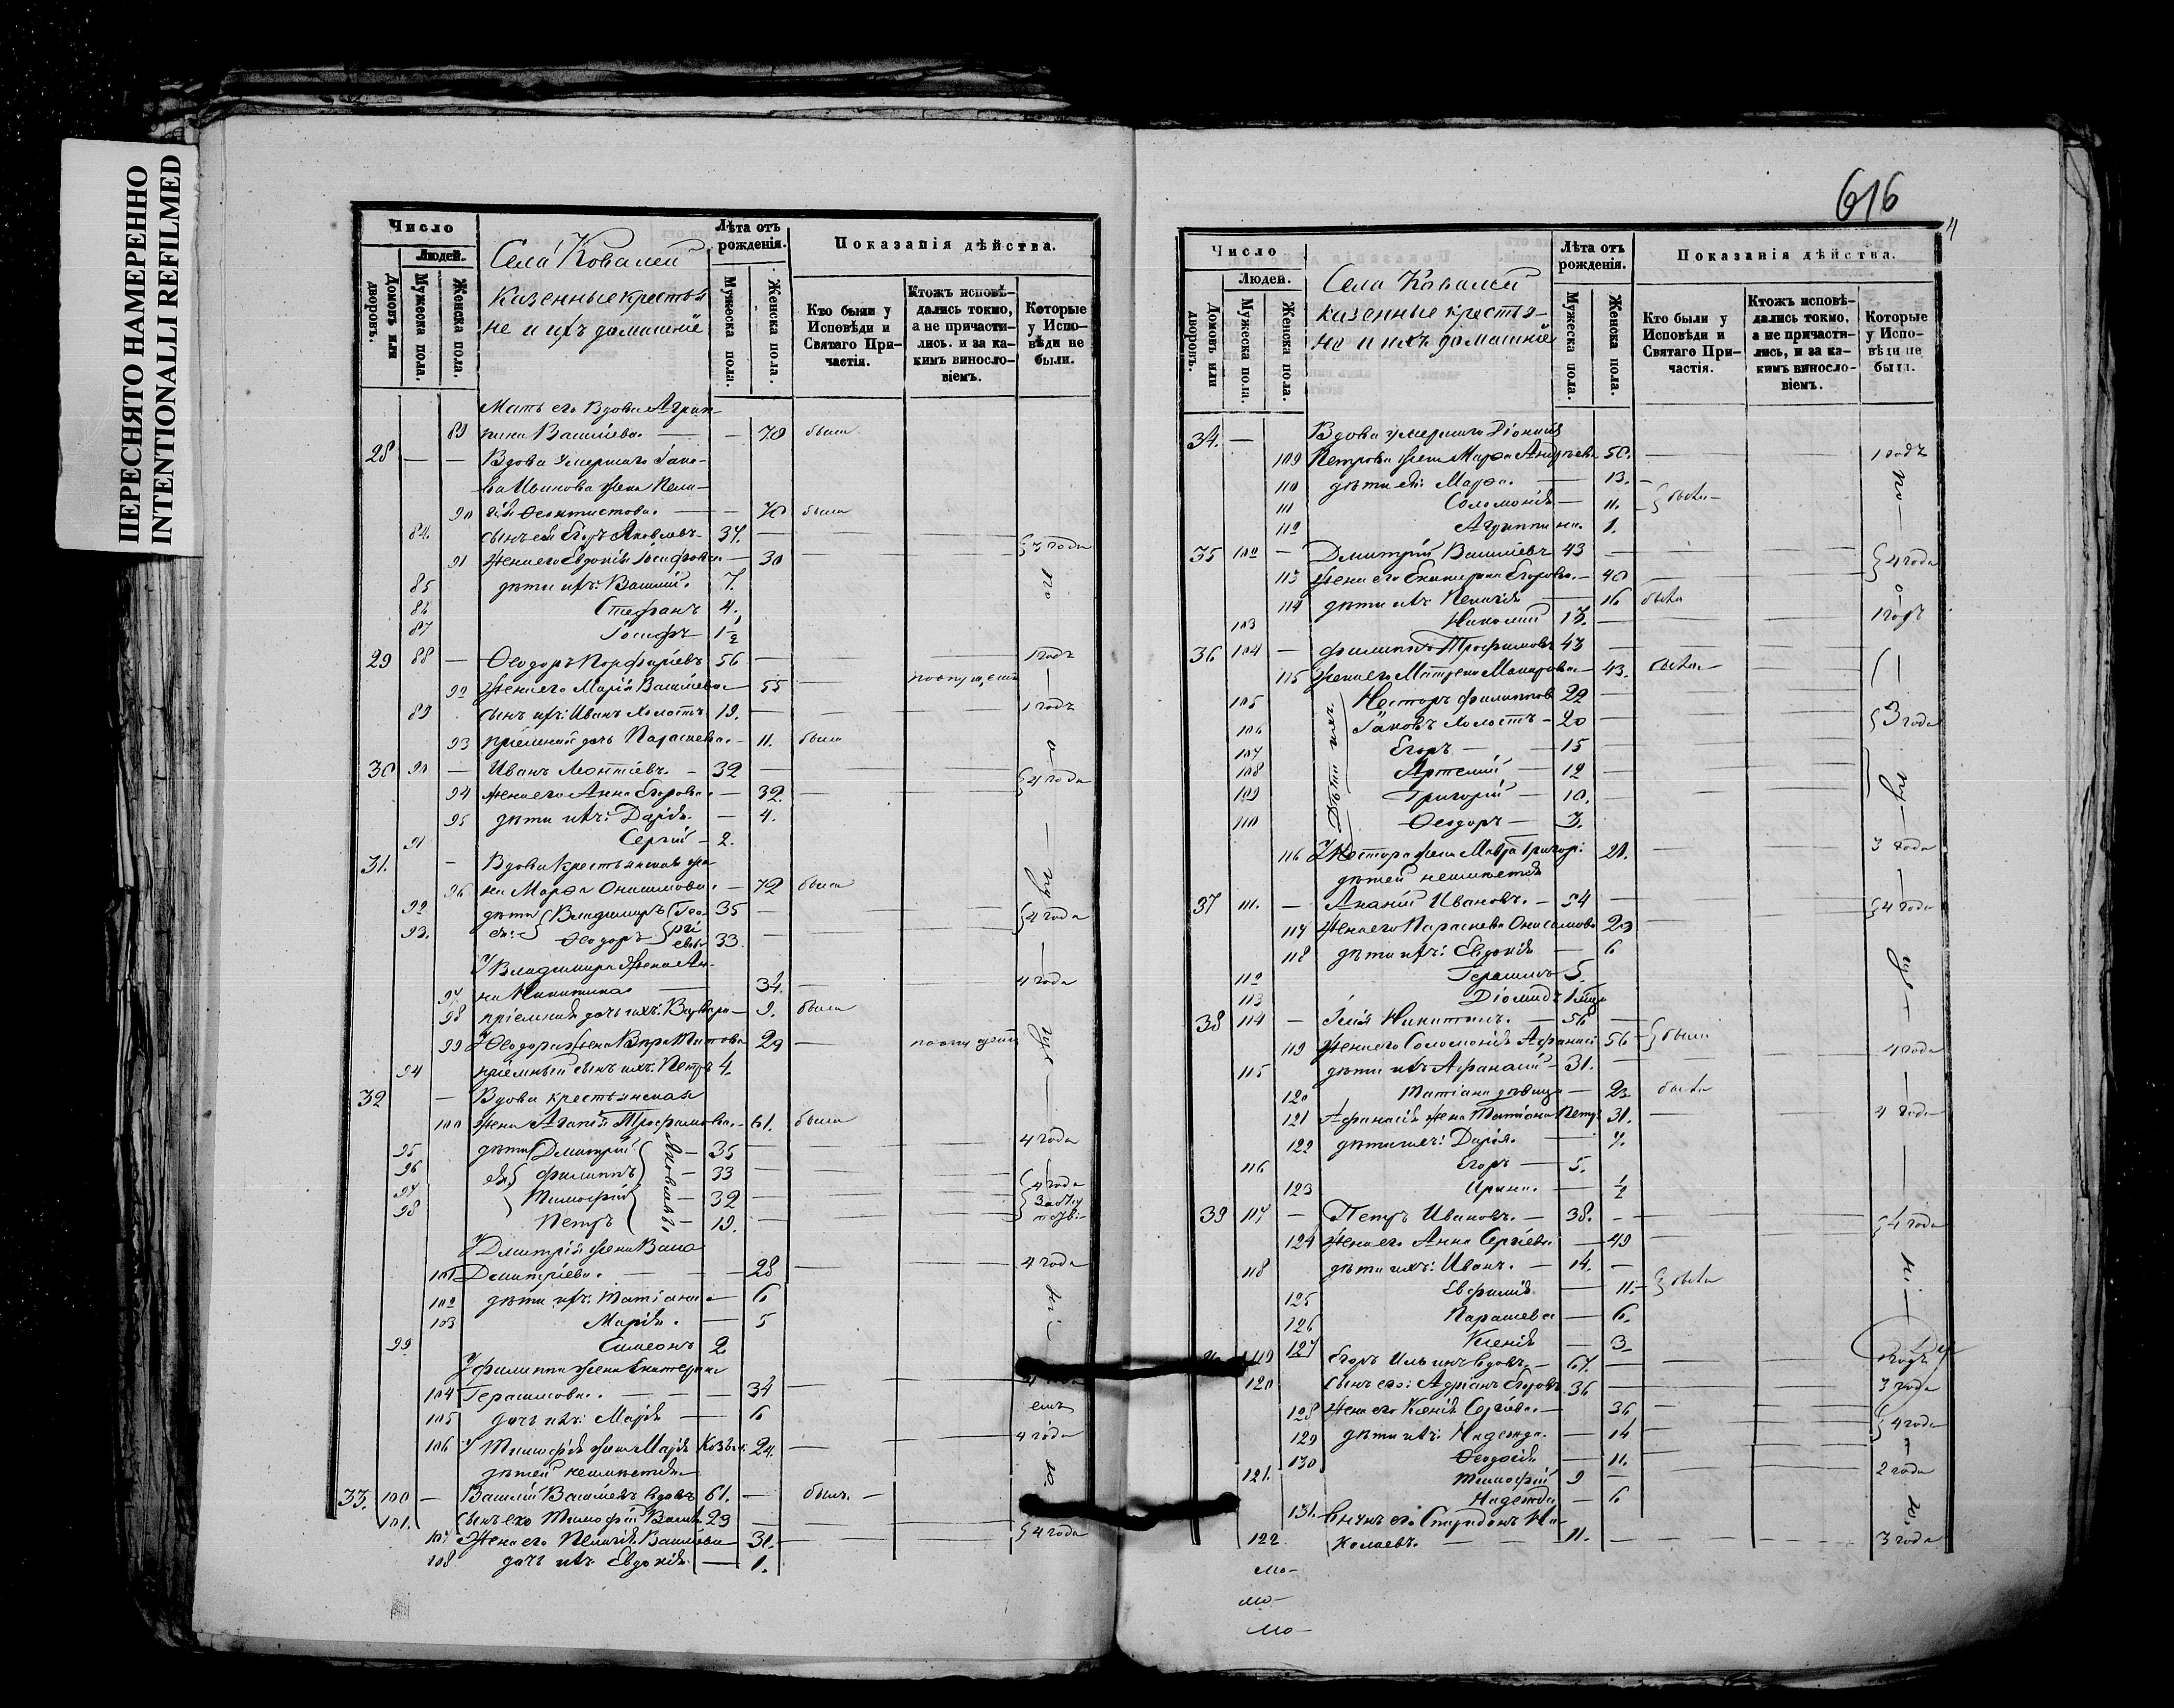 ПЕРЕСНЯТО НАМЕРЕННО
INTENTIONALLI REFILMED
Число
Людей.
Домовъ или дворовъ.
Мужеска пола.
Женска пола.
Села Ковалей
казенные крестья
не и ихъ домашніе
Лѣта отъ рожденія.
Мужеска пола.
Женска пола.
Показанія дѣйства.
Кто были у Исповѣди и Святаго Причастія.
Ктожъ исповѣ-дались токмо, а не причасти-лись. и за ка-кимъ винословіемъ.
Которые у Испо-вѣди не были.
Мать его Вдова Агрип-
89 пина Васильева. — — 70 была
28 — — Вдова умершаго Іако-
ва Иванова жена Пела-
90 гія Ѳеоктистова. — 70 была
84. сынъ ея Егоръ Яковлевъ 37. —
91 Жена его Евдокія Іосифова — 30 3 года
85 дѣти ихъ: Василій. 7.
86 Стефанъ 4.
87 Іосифъ 1½
29 88 — Ѳеодоръ Порфиріевъ 56 — 1 годъ
92 Жена его Марія Васильева 55
89 сынъ ихъ: Иванъ холостъ 19. — 1 годъ
93 пріемная дочь Параскева. — 11. была
30 90 — Иванъ Леонтіевъ. — 32 — 4 года
94 жена его Анна Егорова. — 32.
95 дѣти ихъ: Дарія. — 4.
91 Сергій — 2.
31. — Вдова Крестьянская же-
96 на Марѳа Онисимова. — 72 была
92 дѣти Владиміръ 35 — 4 года
93. ея: Ѳеодоръ 33
У Владиміра жена Ан-
97 на Никитина 34. — 4 года
98 пріемная дочь ихъ: Варвара — 9. была
99 У Ѳеодора жена Титова 29
94 пріемный сынъ ихъ: Петръ 4.
32 — Вдова крестьянская
100 жена Агапія Трофимова. — 61. была
95 дѣти Дмитрій — 35 4 года
96 ея Филиппъ — 33
97 Тимофій — 32 4 года
98 Петръ — 19.
У Дмитрія жена Васса
101 Дмитріева. — 28 — 4 года
102 дѣти ихъ: Татіана — 6
103 Марія. — 5
99 Симеонъ 2
У Филиппа жена Екатерина
104 Герасимова. — — 34
105 дочь ихъ: Марія — 6
106 У Тимофія жена Марія Козьм. 24. — 4 года
дѣтей неимѣется
33. 100 — Василій Васильевъ вдовъ 61. — былъ. —
101. Сынъ его Тимофій Васил. 29
107 Жена его Пелагія Васильева 31. — 4 года
108 дочь ихъ Евдокія — 1.
616
Число
Людей.
Домовъ или дворовъ.
Мужеска пола.
Женска пола.
Села Ковалей
казенные крестья-
не и ихъ домашніе
Лѣта отъ рожденія.
Мужеска пола.
Женска пола.
Показанія дѣйства.
Кто были у Исповѣди и Святаго Причастія.
Ктожъ исповѣ-дались токмо, а не причасти-лись, и за ка-кимъ винословіемъ.
Которые у Испо-вѣди не были.
34. — Вдова умершаго Діонисія
109 Петрова жена Марѳа Андреева 50. — 1 годъ
110 дѣти ея: Марѳа. — 13.
111 Соломонія — 11. были
112 Агриппина. 1.
35 102 — Дмитрій Васильевъ 43 — 4 года
113 Жена его Екатерина Егорова. — 40
114 дѣти ихъ Пелагія — 16 была
103 Николай 13. — 1 годъ
36 104 — Филиппъ Трофимовъ 43
115 Жена его Матрена Макарова — 43. была
105 Несторъ Филиппов 22
106 Іаковъ холостъ — 20 — 3 года
107 Егоръ — 15
108 Артемій — 12
109 Григорій — 10.
110 Ѳеодоръ — 3.
Дѣти ихъ
116 У Нестора жена Мавра Григор: 21. — 3 года
дѣтей неимѣется
37 111. — Ананій Ивановъ. — 24 — 4 года
117 Жена его Параскева Онисимова 23
118 дѣти ихъ: Евдокія — 6
112 Герасимъ 5.
113 Діомидъ 1
38 114 — Илія Никитинъ. — 56
119 Жена его Соломонія Афанас: 56 — были
115 дѣти ихъ Афанасій — 31. — 4 года
120 Татіана дѣвица — 23. была
121 Афанасія жена Татіана Петр. 31. — 4 года
122 дѣти ихъ: Дарія. — 7.
116 Егоръ — 5.
123 Ирина. — ½
39 117 — Петръ Ивановъ. — 38. — 4 года
124 Жена его Анна Сергіева — 40
118 дѣти ихъ: Иванъ. — 14. —
125 Евфимія — 11. — была
126 Параскева — 6.
127 Ксенія — 3
119 Егоръ Ильинъ вдовъ. — 67. —
120 Сынъ его: Адріанъ Егоровъ 36 — 3 года
128 Жена его Ксенія Сергіева. — 36 — 4 года
129 дѣти ихъ: Надежда. — 14
130 Ѳеодосія — 11.
121. Тимофій 9 — 2 года
Надежда — 6
131. Внукъ его Спиридонъ Ни-
122 колаевъ. — 11. — 3 года
мо-
мо-
мо-